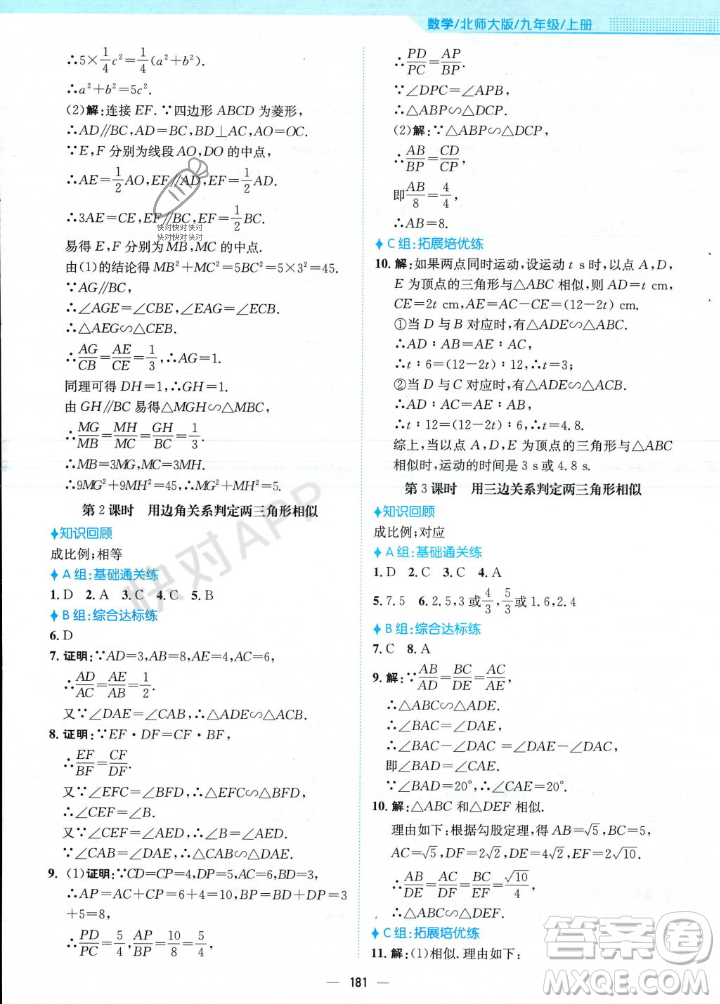 数学/北师大版/九年级/上册
∴5×1/4c²=1/4(a²+b²).
∴a²+b²=5c².
(2)解:连接 EF.∵四边形 ABCD 为菱形,
∴AD∥BC,AD=BC,BD⊥AC,AO=OC.
∵E,F 分别为线段 AO,DO 的中点,
∴AE=1/2AO,EF∥AD,EF=1/2AD.
∴3AE=CE,EF∥BC,EF=1/2BC.
快对快对快对
快对快对快对
易得 E,F 分别为 MB,MC 的中点.
由(1)的结论得 MB²+MC²=5BC²=5×3²=45.
∵AG∥BC,
∴∠AGE=∠CBE,∠EAG=∠ECB.
∴△AEG∽△CEB.
∴AG/CB=AE/CE=1/3.∴AG=1.
同理可得 DH=1,∴GH=1.
由 GH∥BC 易得△MGH∽△MBC.
∴MG/MB=MH/MC=GH/BC=1/3.
∴MB=3MG,MC=3MH.
∴9MG²+9MH²=45,∴MG²+MH²=5.
第 2 课时 用边角关系判定两三角形相似
知识回顾
成比例;相等
A 组:基础通关练
1. D 2. A 3. C 4. C 5. B
B 组:综合达标练
6. D
7. 证明:∵AD=3,AB=8,AE=4,AC=6,
∴AD/AC=AE/AB=1/2.
又∵∠DAE=∠CAB,∴△ADE∽△ACB.
8. 证明:∵EF·DF=CF·BF,
∴EF/BF=CF/DF.
又∵∠EFC=∠BFD,∴△EFC∽△BFD.
∴∠CEF=∠B.∴∠B=∠AED.
又∵∠DAE=∠CAB,∴△ADE∽△ACB.
9. (1)证明:∵CD=CP=6,AC=4,BD=3,
∴AP=AC+CP=6+4=10,BP=BD+DP=3
+5=8,
∴PD/PC=5/4,AP/BP=10/8=5/4,
∴PD/PC=AP/BP.
∵∠DPC=∠APB,
∴△ABP∽△DCP.
(2)解:∵△ABP∽△DCP,
∴AB/BP=CD/CP,
即AB/8=4/4,
∴AB=8.
C 组:拓展培优练
10. 解:如果两点同时运动,设运动 t s时,以点 A,D,
E 为顶点的三角形与△ABC 相似,则 AD=t cm,
CE=2t cm,AE=AC-CE=(12-2t) cm.
①当 D 与 B 对应时,有△ADE∽△ABC.
∴AD∶AB=AE∶AC.
∴t∶6=(12-2t)∶12,∴t=3;
②当 D 与 C 对应时,有△ADE∽△ACB.
∴AD∶AC=AE∶AB.
∴t∶12=(12-2t)∶6,∴t=4.8.
综上,当以点 A,D,E 为顶点的三角形与△ABC
相似时,运动的时间是 3 s或 4.8 s.
第 3 课时 用三边关系判定两三角形相似
知识回顾
成比例;对应
A 组:基础通关练
1. D 2. C 3. C 4. A
5. 7.5 6. 2.5,3或4/3,5/3或1.6,2.4
B 组:综合达标练
7. C 8. A
9. 解:∵AB/AD=BC/DE=AC/AE,
∴△ABC∽△ADE.
∴∠BAC=∠DAE,
∴∠BAC-∠DAC=∠DAE-∠DAC,
即∠BAD=∠CAE.
∵∠BAD=20°,∴∠CAE=20°.
10. 解:△ABC 和△DEF 相似.
理由如下:根据勾股定理,得 AB=√5,BC=5,
AC=√5,DF=2√2,EF=2√2,
C 组:拓展培优练
11. 解:(1)相似.理由如下:
快对APP
答案圈
MXQE.COM
181